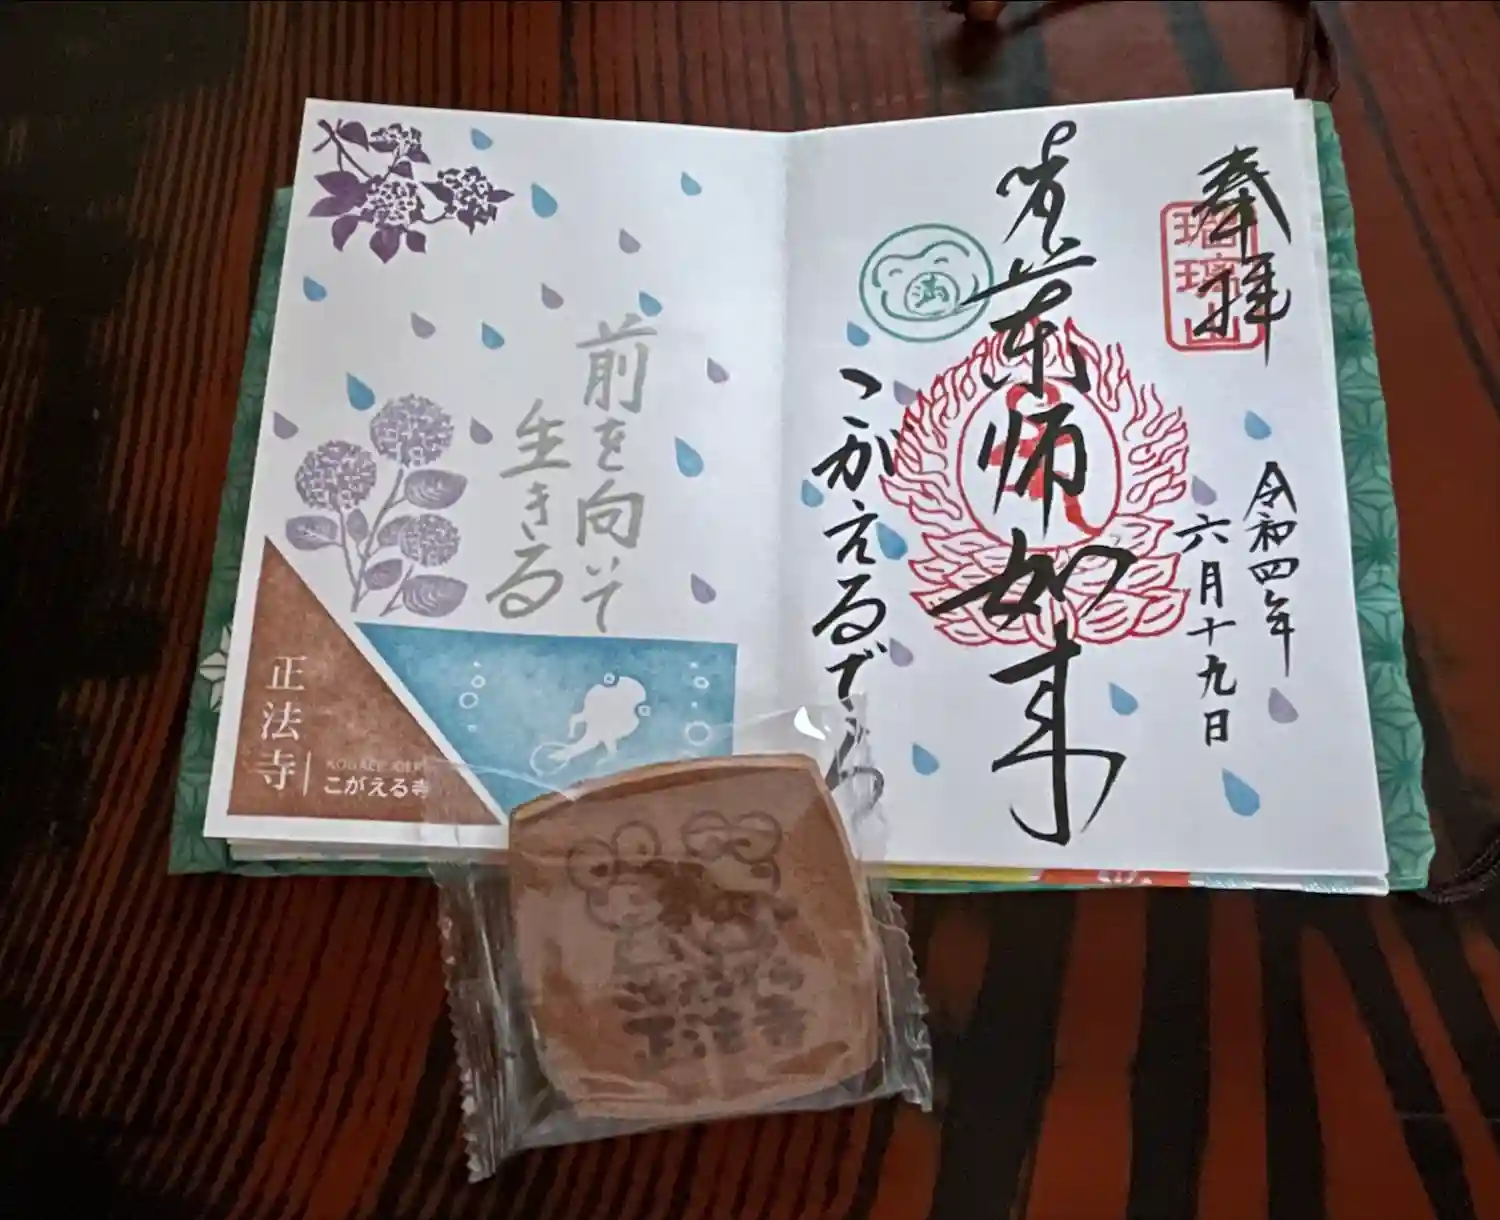 奉拝
瑠
璃
山
令和四年
六月十九日
薬師如来
満
こがえるでら
前を向いて
生きる
正法寺
KOGAERUDERA
こがえる寺
正法寺